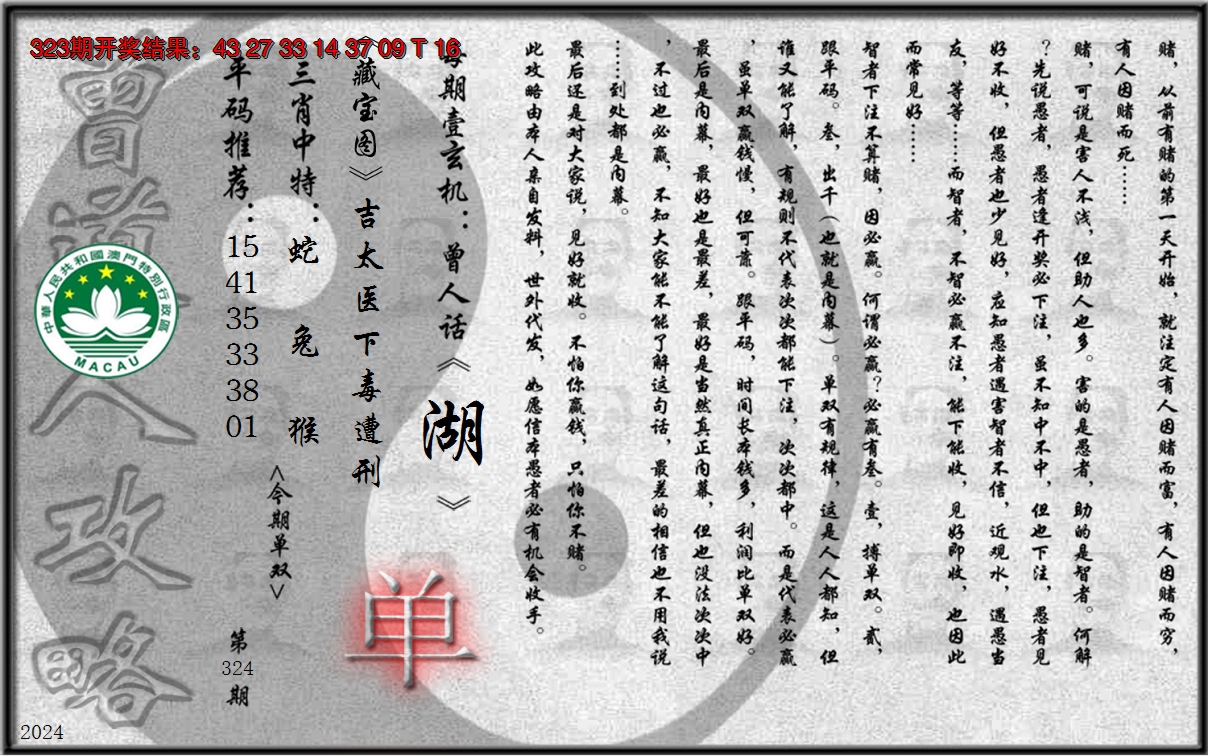 323期开奖结果：43 27 33 14 37 09 T 16
赌，从前有赌的第一天开始，就注定有人因赌而富，有人因赌而穷，
有人因赌而死……
赌，可说是害人不浅，但助人也多。害的是愚者，助的是智者。何解
？先说愚者，愚者逢开奖必下注，虽不知中不中，但也下注，愚者见
好不收，但愚者也少见好，应知愚者遇害智者不信，近观水，遇愚当
友，等等……而智者，不智必赢不注，能下能收，见好即收，也因此
而常见好……
智者下注不算赌，因必赢。何谓必赢？必赢有叁。壹，搏单双。贰，
跟平码。叁，出千（也就是内幕）。单双有规律，这是人人都知，但
谁又能了解，有规则不代表次次都能下注，次次都中。而是代表必赢
，虽单双赢钱慢，但可靠。跟平码，时间长本钱多，利润比单双好。
最后是内幕，最好也是最差，最好是当然真正内幕，但也没法次次中
，不过也必赢，不知大家能不能了解这句话，最差的相信也不用我说
……到处都是内幕。
最后还是对大家说，见好就收。不怕你赢钱，只怕你不赌。
此攻略由本人亲自发料，世外代发，如愿信本愚者必有机会收手。
每期壹玄机：曾人话《湖》
《藏宝图》吉太医下毒遭刑
三肖中特：蛇 兔 猴
平码推荐：15 41 35 33 38 01
<今期单双>
单
第324期
曾道人攻略
中華人民共和國澳門特別行政區
MACAU
2024